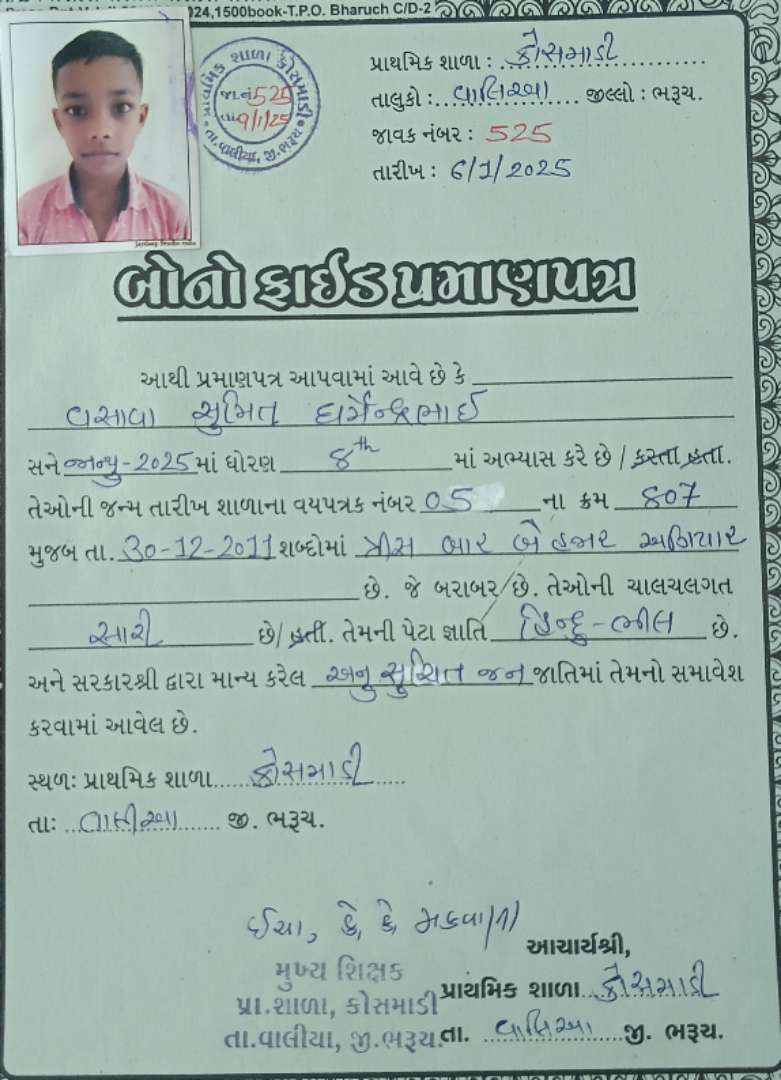 024,1500book-T.P.O. Bharuch C/D-2
પ્રાથમિક શાળા કોસમાડી
જા.નં 525
તા 9/1/25
તા.વાલીયા, જી.ભરૂચ
Jaydeep Studio Valia
પ્રાથમિક શાળા : કોસમાડી
તાલુકો : વાલિઆ જીલ્લો : ભરૂચ.
જાવક નંબર : 525
તારીખ : 6/1/2025
બોનો ફાઈડ પ્રમાણપત્ર
આથી પ્રમાણપત્ર આપવામાં આવે છે કે
વસાવા સુમિત ધર્મેન્દ્રભાઈ
સને જાન્યુ-2025 માં ધોરણ 8th માં અભ્યાસ કરે છે / કરતા હતા.
તેઓની જન્મ તારીખ શાળાના વયપત્રક નંબર 05 ના ક્રમ 807
મુજબ તા. 30-12-2011 શબ્દોમાં ત્રીસ બાર બે હજાર અગિયાર
છે. જે બરાબર છે. તેઓની ચાલચલગત
સારી છે/ હતી. તેમની પેટા જ્ઞાતિ હિન્દુ-ભીલ છે.
અને સરકારશ્રી દ્વારા માન્ય કરેલ અનુ સુચિત જન જાતિમાં તેમનો સમાવેશ
કરવામાં આવેલ છે.
સ્થળઃ પ્રાથમિક શાળા કોસમાડી
તાઃ વાલીઆ જી. ભરૂચ.
ઈચા, કે, કે મકવાણા
આચાર્યશ્રી,
મુખ્ય શિક્ષક
પ્રાથમિક શાળા કોસમાડી
પ્રા.શાળા, કોસમાડી
તા. વાલિઆ જી. ભરૂચ.
તા.વાલીયા, જી.ભરૂચ.